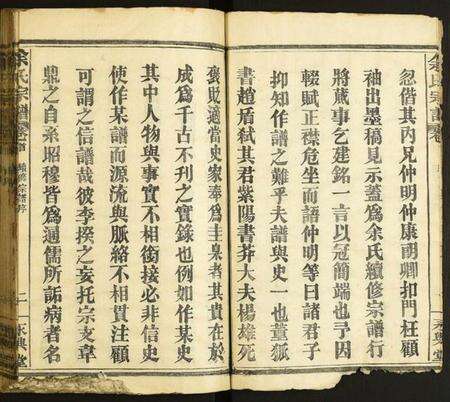 余氏宗譜 卷
忽偕其內兄仲明仲康萌卿扣門枉顧
袖出墨稿見示蓋爲余氏續修宗譜行
將蕆事乞建銘一言以冠簡端也予因
輟賦正襟危坐而語仲明等曰諸君子
抑知作譜之難乎夫譜與史一也董狐
書趙盾弑其君紫陽書莽大夫楊雄死
褒貶適當史家奉為圭臬者其貴在於
成爲千古不刋之實錄也例如作某史
其中人物與事實不相銜接必非信史
使作某譜而源流與脈絡不相貫注顧
可謂之信譜哉彼李揆之妄托宗支韋
鼎之自系昭穆皆爲通儒所詬病者名
余氏宗譜 卷首 續修宗譜序 一 永興堂
永興堂